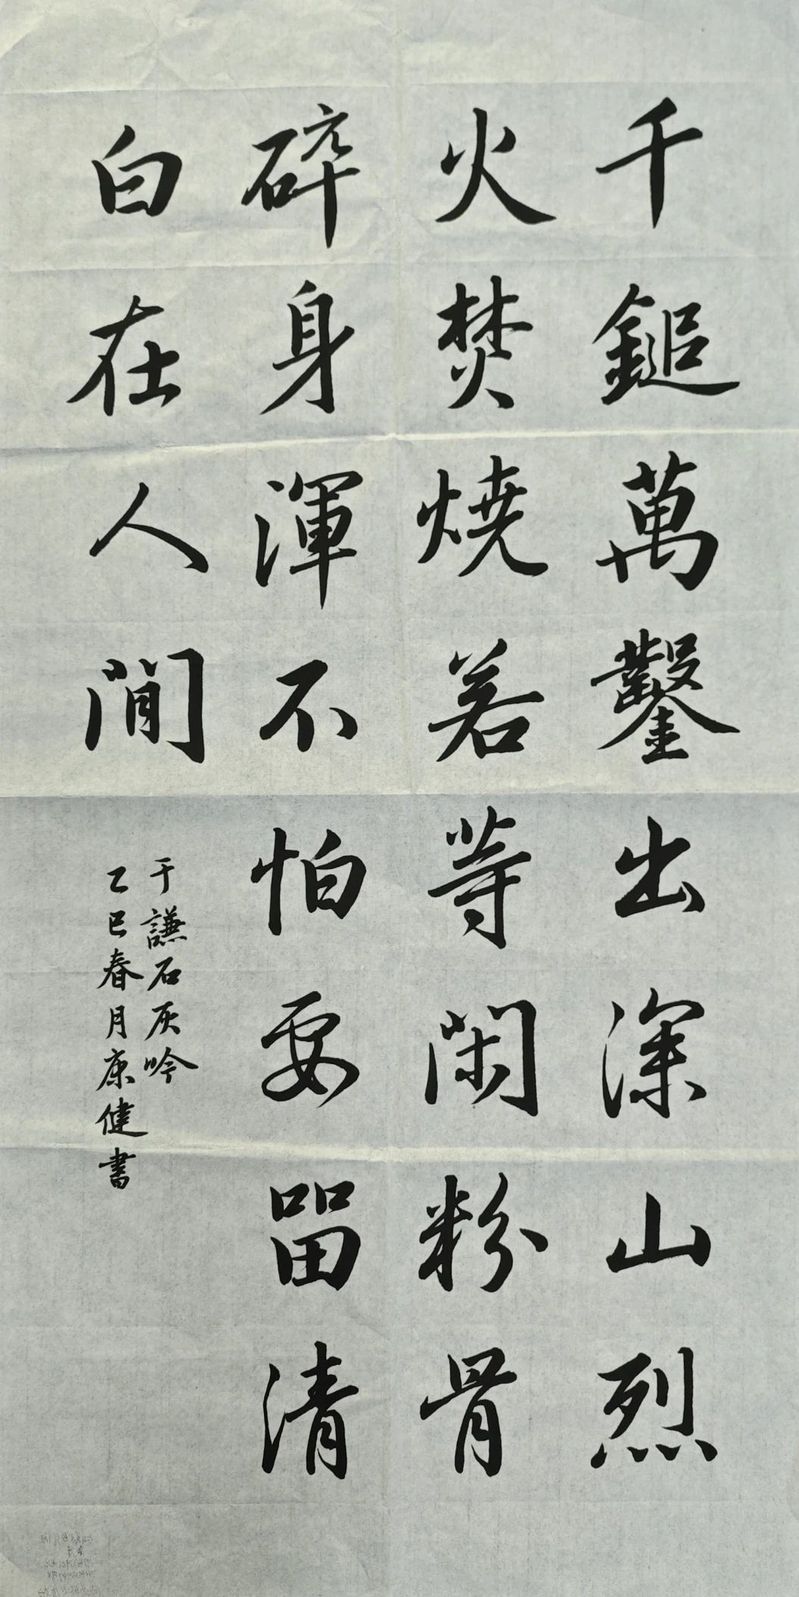 千鎚萬鑿出深山烈
火焚燒若等閑粉骨
碎身渾不怕要留清
白在人間
于謙石灰吟
乙巳春月康健書